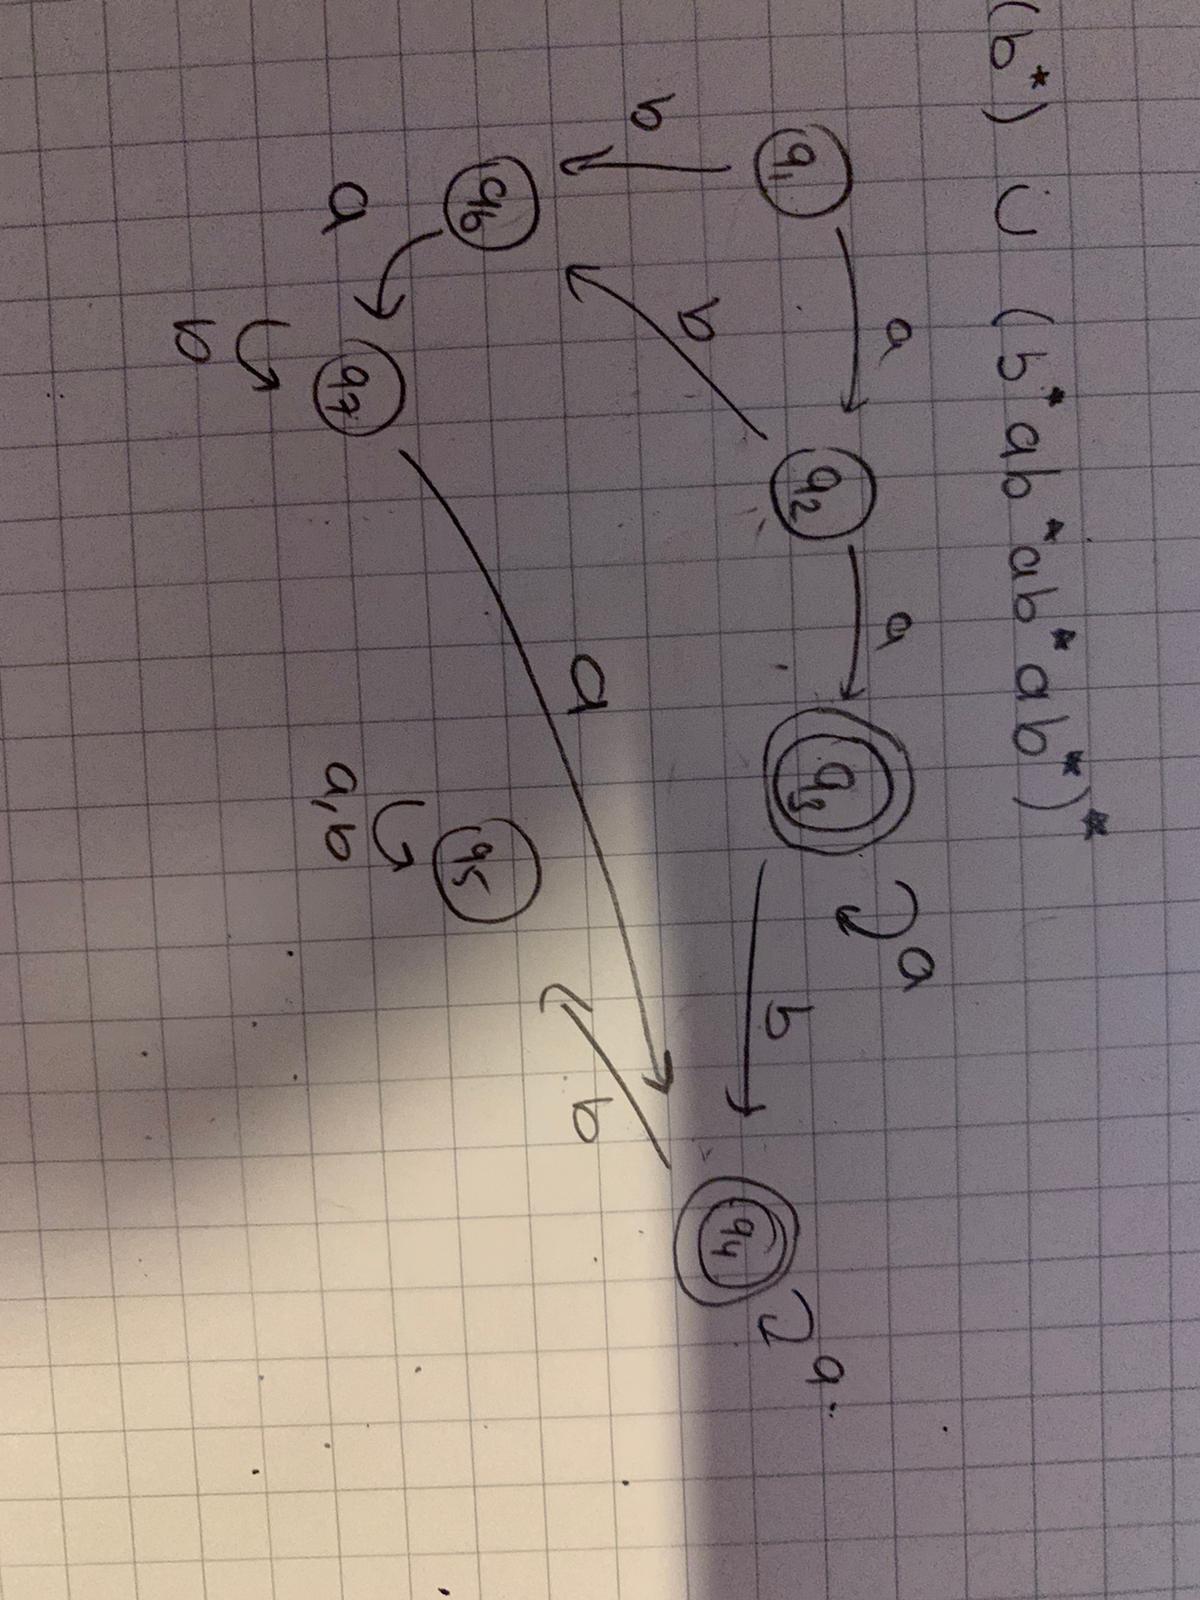 (b*) ∪ (b*ab*ab*ab*)*
a a a
q₁ q₂ q₃ a
b q₄
b b
a b
q₆ q₅
a q₇ a,b
b